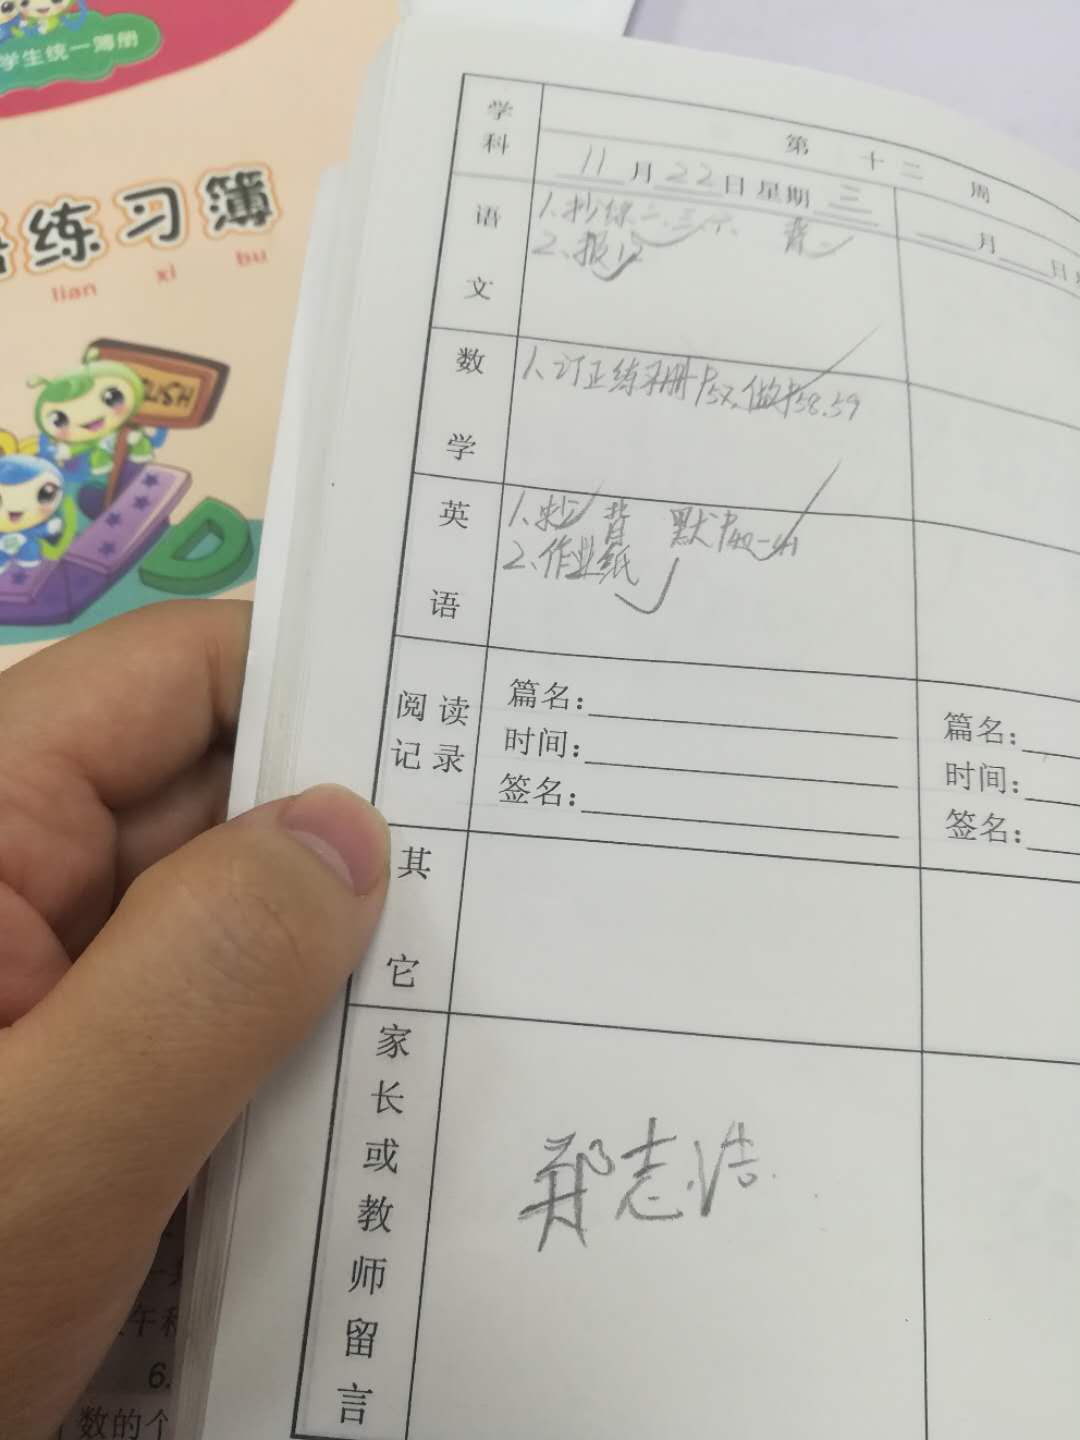 学生统一簿册
练习簿
lian xi bu
ISH
D
学科
第十二周
11月22日星期三
月 日
语文
2、报12
数学
1、订正练习册P57、做P58.59
英语
1、抄 背 默
2、作业纸
阅读记录
篇名：
时间：
签名：
篇名：
时间：
签名：
其它
家长或教师留言
郑志浩
午
6.
数的个